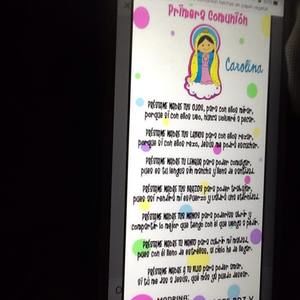 Primera Comunión
Carolina
Préstame Madre tus ojos, para con ellos mirar,
porque si con ellos veo, nunca volveré a pecar.
Préstame Madre tus labios para con ellos rezar,
porque si con ellos rezo, Jesús me podrá escuchar.
Préstame Madre tu lengua para poder comulgar,
pues es tu lengua sin mancha y llena de santidad.
Préstame Madre tus brazos para poder trabajar,
pues así rendirá mi esfuerzo y valdrá una eternidad.
Préstame Madre tus manos para poderlas abrir y
compartir lo mejor que tengo con el que venga a pedir.
Préstame Madre tu manto para cubrir mi maldad,
pues con él lleno de estrellas, al cielo he de llegar.
Préstame Madre a tu hijo para poder amar,
si tú me das a Jesús, qué más puedo desear
MADRINA: